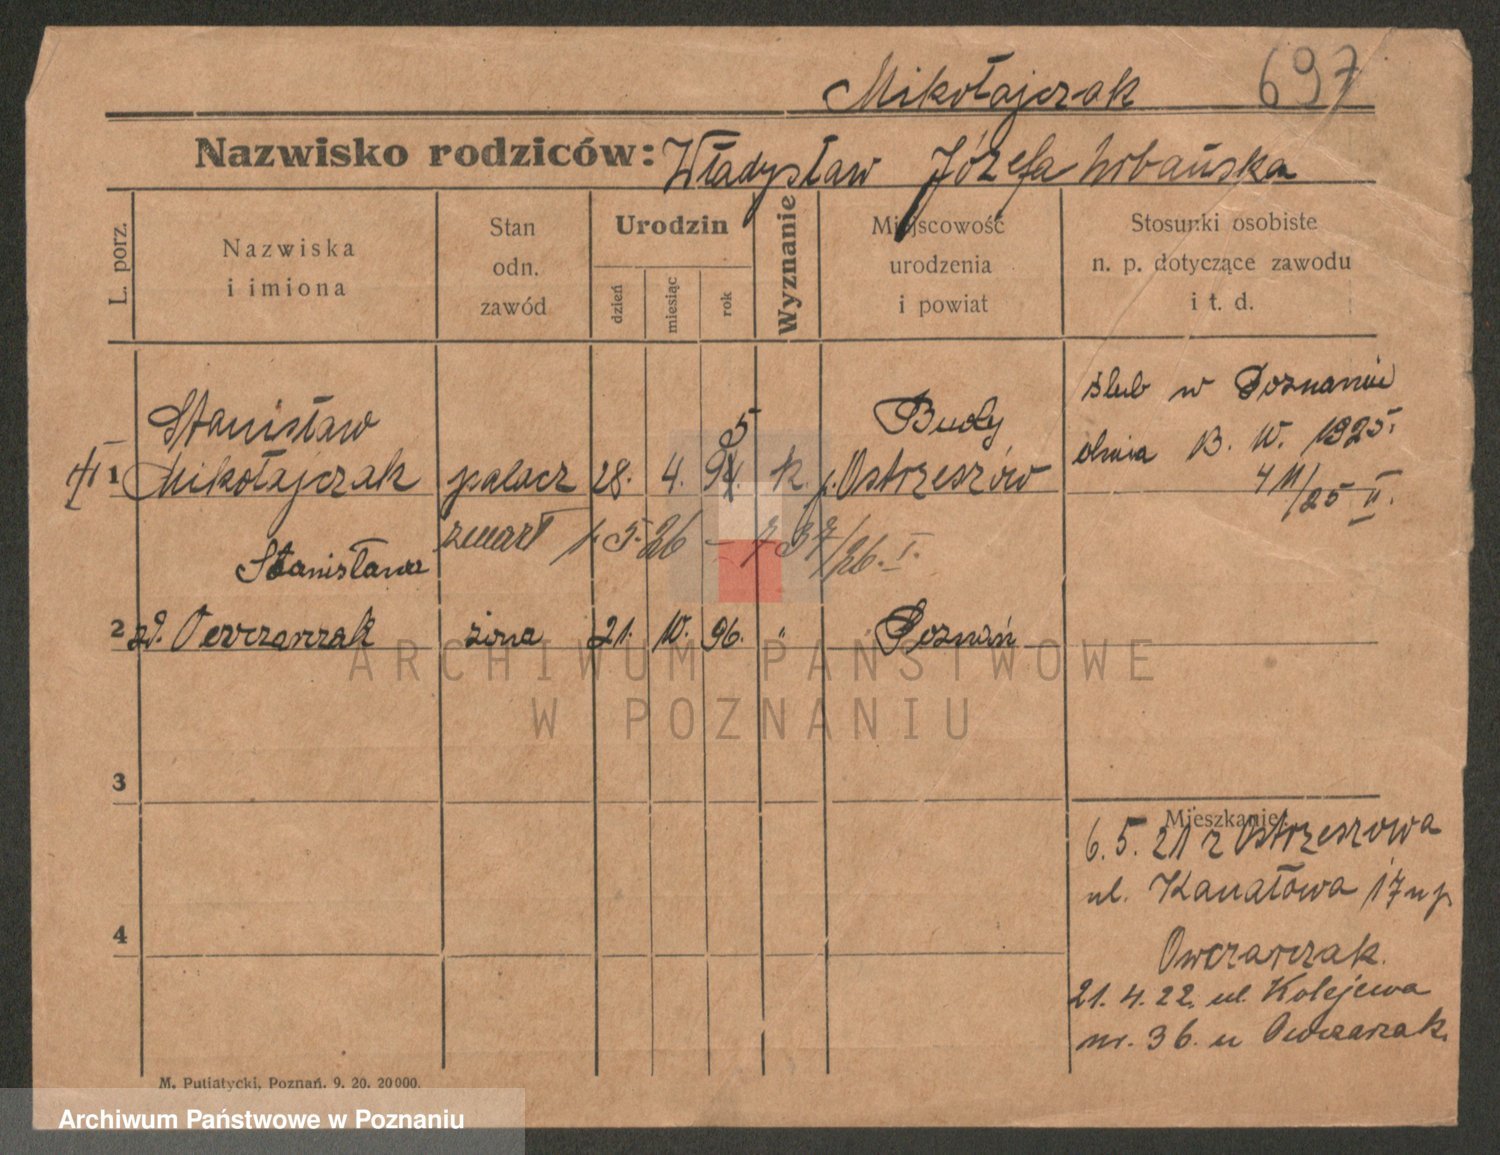 Mikołajczak 697
Nazwisko rodziców: Władysław Józefa Urbańska
L. porz.
Nazwiska
i imiona
Stan
odn.
zawód
Urodzin
dzień
miesiąc
rok
Wyznanie
Miejscowość
urodzenia
i powiat
Stosunki osobiste
n. p. dotyczące zawodu
i t. d.
Stanisław 5 Budy ślub w Poznaniu
1 Mikołajczak palacz 28. 4. k. p. Ostrzeszów dnia 13. IV. 1925.
4 /25 II.
zmarł 1.5.26 – 737/26. I.
Stanisława
2 Owczarczak żona 21. IV. 96. " Poznań
ARCHIWUM PAŃSTWOWE
W POZNANIU
3
Mieszkanie:
6. 5. 21 z Ostrzeszowa
ul. Kanałowa 17
4
Owczarczak.
21. 4. 22. ul. Kolejowa
nr. 36. u Owczarczak.
M. Putiatycki, Poznań. 9. 20. 20000.
Archiwum Państwowe w Poznaniu